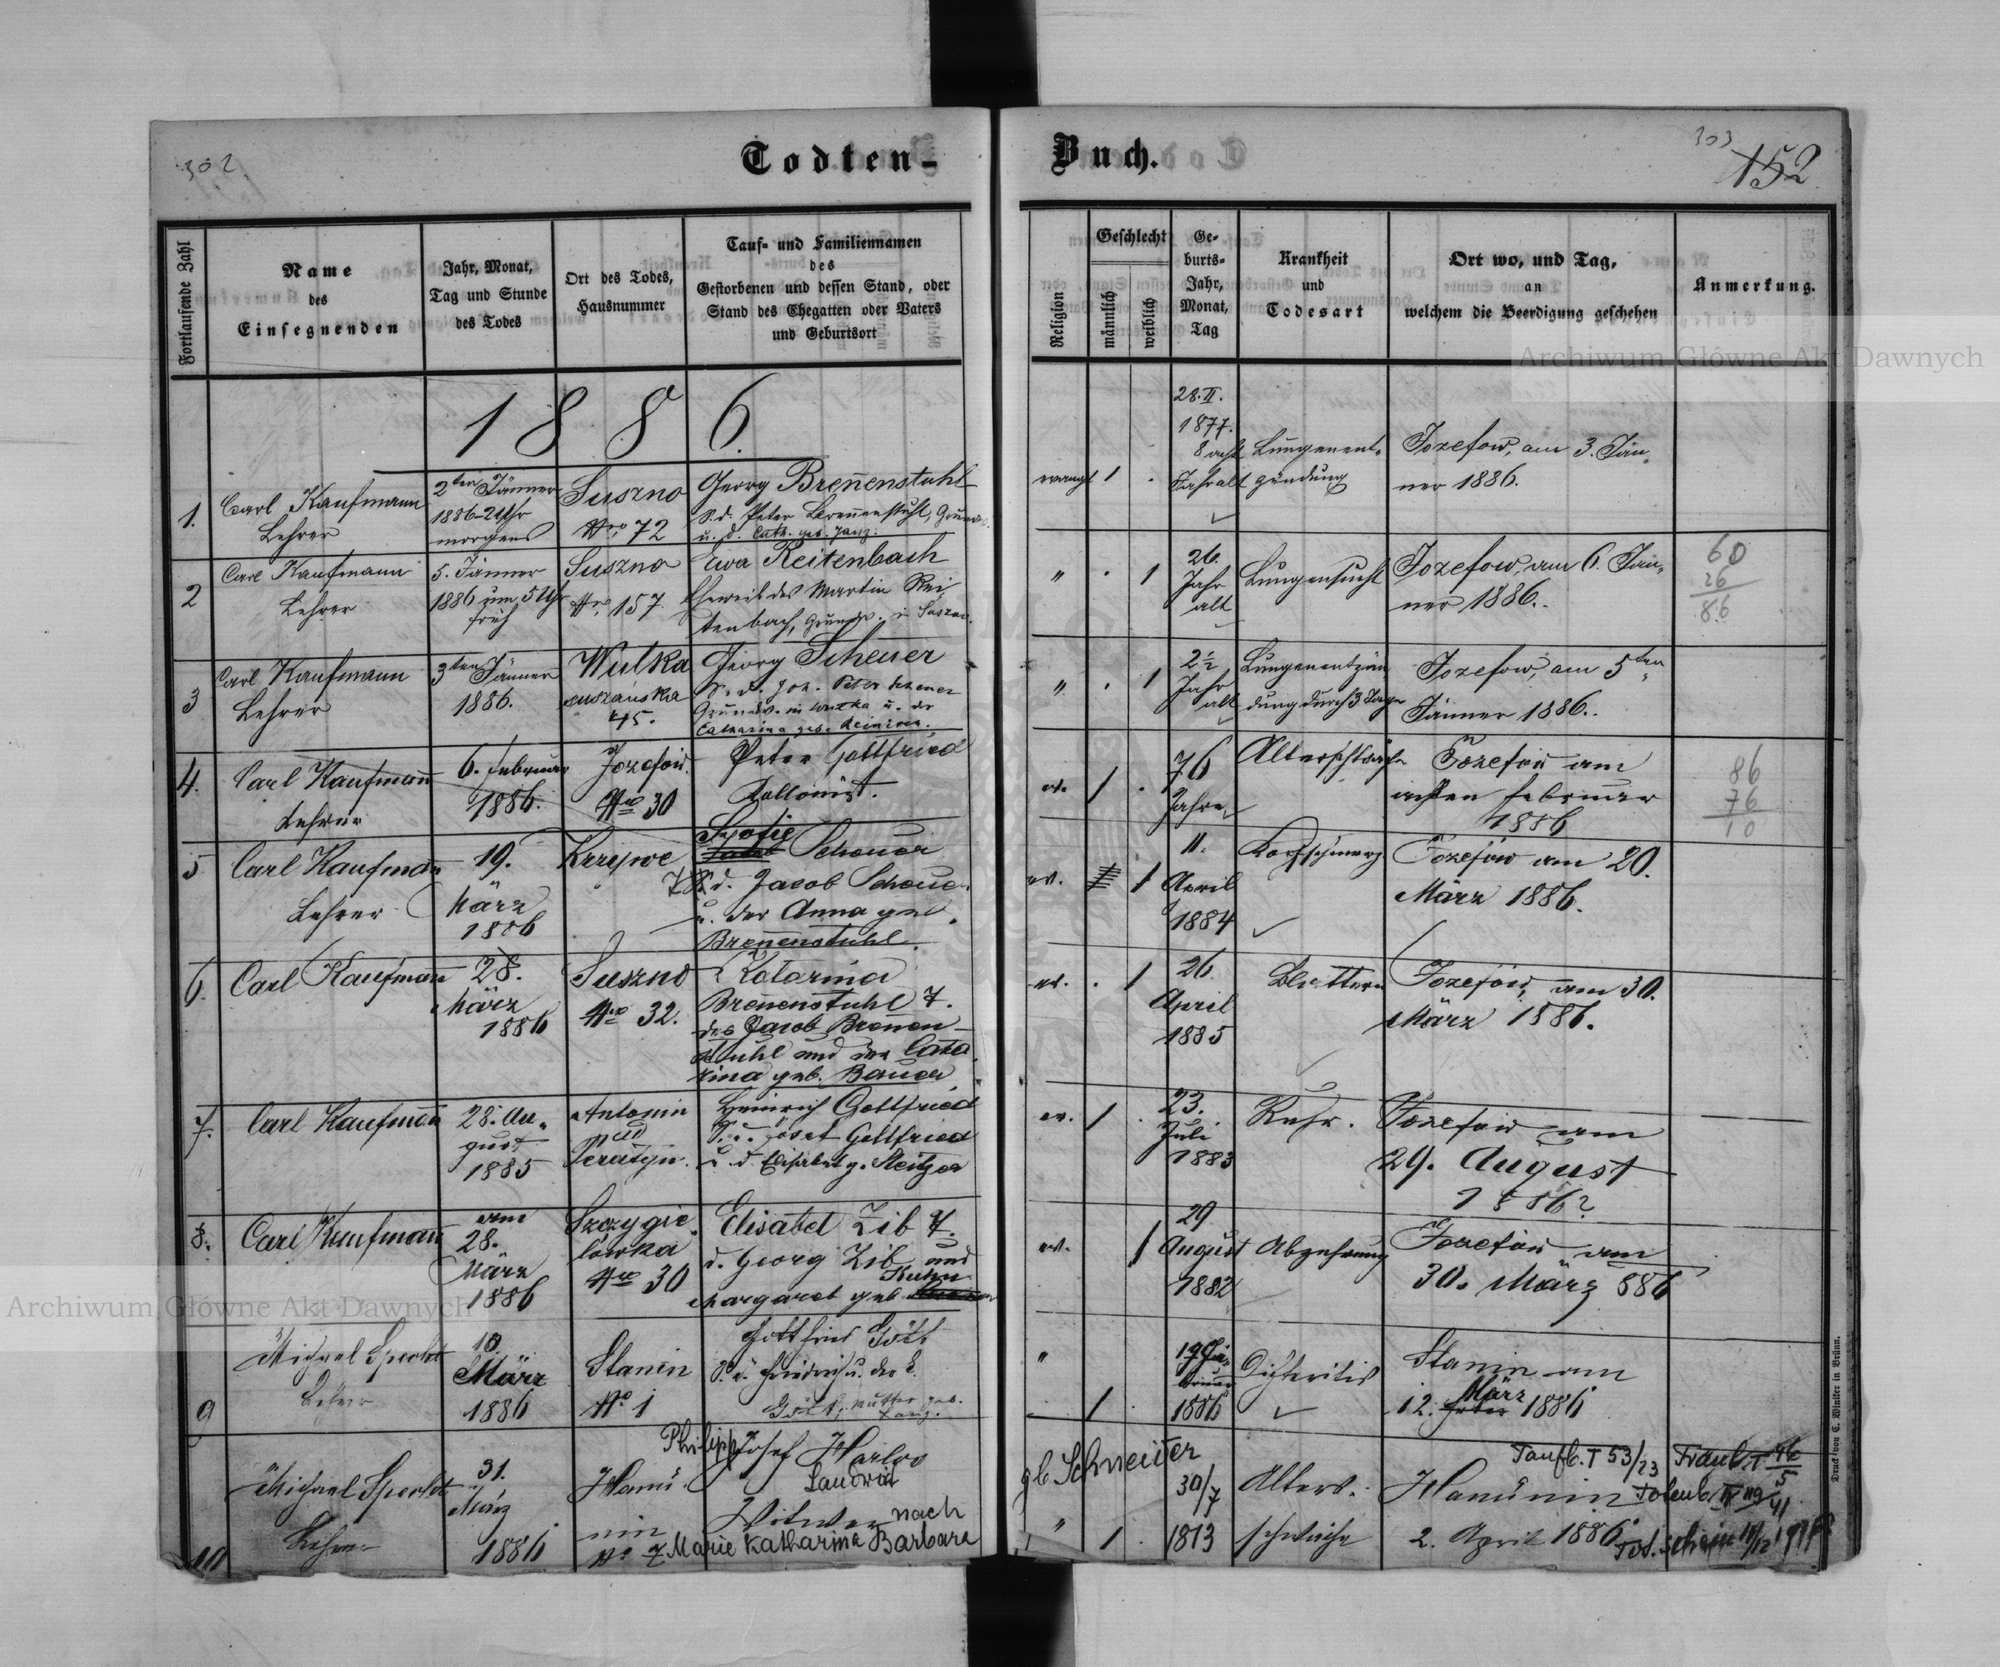 302
Todten-
Buch.
303
152
Fortlaufende Zahl
Name
des
Einsegnenden
Jahr, Monat,
Tag und Stunde
des Todes
Ort des Todes,
Hausnummer
Tauf- und Familiennamen
des
Gestorbenen und dessen Stand, oder
Stand des Ehegatten oder Vaters
und Geburtsort
Religion
Geschlecht
männlich
weiblich
Ge-
burts-
Jahr,
Monat,
Tag
Krankheit
und
Todesart
Ort wo, und Tag,
an
welchem die Beerdigung geschehen
Anmerkung.
1886.
1.
Carl Kaufmann
Lehrer
2ten Jänner
1886 2 Uhr
morgens
Suszno
Nro 72
Georg Breñenstuhl
S. d. Peter Breñenstuhl, Grundw.
u. d. Cath. geb. Janz.
evangl
1
28. II.
1877.
8 acht
Jahr alt
Lungenent-
zündung
Jozefow, am 3. Jän-
ner 1886.
2
Carl Kaufmann
Lehrer
5. Jänner
1886 um 5 Uhr
früh
Suszno
Nro 157.
Ewa Reitenbach
Eheweib des Martin Rei-
tenbach, Grundw. in Suszno.
"
1
26
Jahr
alt
Lungensucht
Jozefow, am 6. Jän-
ner 1886.
60
26
86
3
Carl Kaufmann
Lehrer
3ten Jänner
1886.
Wulka
suszańska
45.
Georg Scheuer
S. d. Joh. Peter Scheuer
Grundw. in Wulka u. der
Catharina geb.
"
1
2½
Jahr
alt
Lungenentzün
dung durch 3 Tage
Jozefow, am 5ten
Jänner 1886.
4.
Carl Kaufmann
Lehrer
6. Februar
1886.
Jozefow.
Nro 30
Peter Gottfried
Kollonist.
ev.
1
76
Jahre
Altersschwäche
Jozefow am
achten Februar
1886
86
76
10
5
Carl Kaufman
Lehrer
19.
März
1886
Krzywe
Sofie
Scheuer
T. d. Jacob Scheuer
u. der Anna geb.
Breñenstuhl.
ev.
1
11.
April
1884
Kopfschmerz
Jozefów am 20.
März 1886.
6.
Carl Kaufman
28.
März
1886
Suszno
Nro 32.
Katarina
Breñenstuhl T.
des Jacob Breñen-
stuhl und der Cata
rina geb. Bauer
ev.
1
26
April
1885
Blattern
Jozefów, am 30.
März 1886.
7.
Carl Kaufman
28. Au-
gust
1885
Antonin
pod
Heinrich Gottfried
S. d. Josef Gottfried
u. d. Elisabet g. Reitzer
ev.
1
23.
Juli
1883
Ruhr.
Jozefow am
29. August
1886?
8.
Carl Kaufman
am
28.
März
1886
Szczygie
lówka
Nro 30
Elisabet Zib T.
d. Georg Zib und
Kuhn
Margaret geb
ev.
1
29
August
1882
Abzehrung
Jozefów am
30. März 886
9
Michael Specht
Lehrer
10.
März
1886
Stanin
No 1
Gottfried Gött
S. d. Friedrich u. der E.
Gött, Mutter geb.
"
1
19
1886
Difteritis
Stanin am
März
12. 1886
10
Michael Specht
Lehrer
31.
März
1886
Hanu-
nin
No 7
Philipp Josef Harlos
Landwirt
Witwer nach
Marie Katharina Barbara
gb Schneider
"
1
30/7
1813
Alters-
schwäche
Hanunin
2. April 1886
Taufb. T 53/23
Traub. T 46/5
Totenb. IV 119/41
Tot. schein 11/12
Druck von C. Winiker in Brünn.
Archiwum Główne Akt Dawnych
Archiwum Główne Akt Dawnych